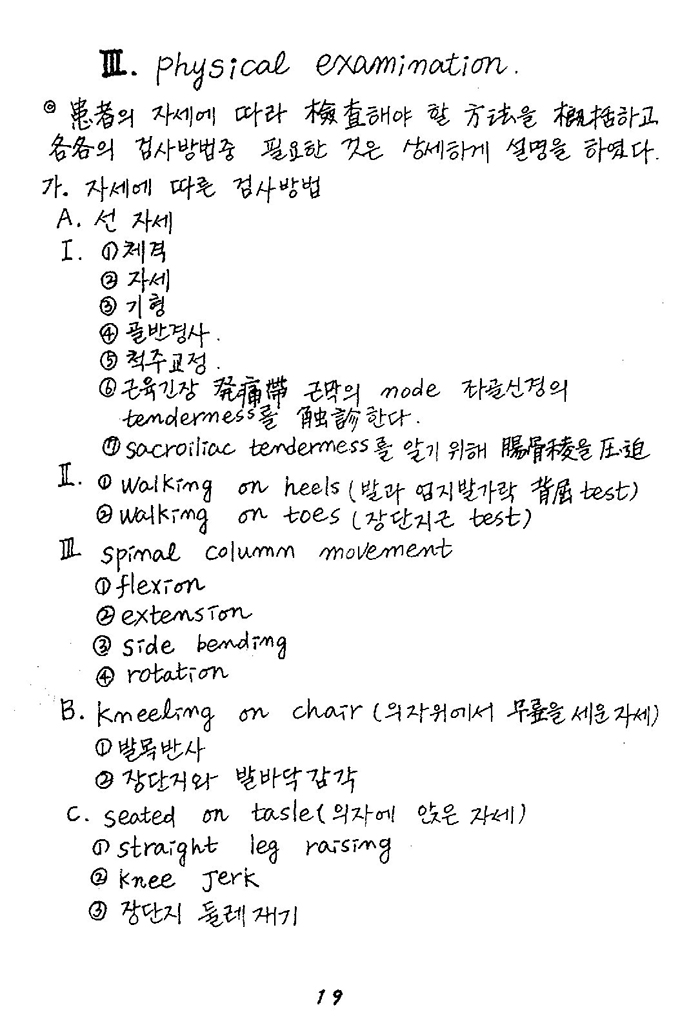 Ⅲ. physical examination.
◎ 患者의 자세에 따라 檢査해야 할 方法을 槪括하고
各各의 검사방법중 필요한 것은 상세하게 설명을 하였다.
가. 자세에 따른 검사방법
A. 선 자세
I. ① 체격
② 자세
③ 기형
④ 골반경사.
⑤ 척주교정.
⑥ 근육긴장 発痛帶 근막의 node 좌골신경의
tenderness를 触診한다.
⑦ sacroiliac tenderness를 알기 위해 腸骨稜을 圧迫
Ⅱ. ① walking on heels (발과 엄지발가락 背屈 test)
② walking on toes (장단지근 test)
Ⅲ spinal column movement
① flexion
② extension
③ side bending
④ rotation
B. kneeling on chair (의자위에서 무릎을 세운 자세)
① 발목반사
② 장단지와 발바닥 감각
C. seated on tasle (의자에 앉은 자세)
① straight leg raising
② knee Jerk
③ 장단지 둘레 재기
19